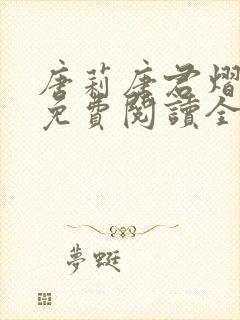 唐莉唐君熠
免費閱讀全
夢蜓